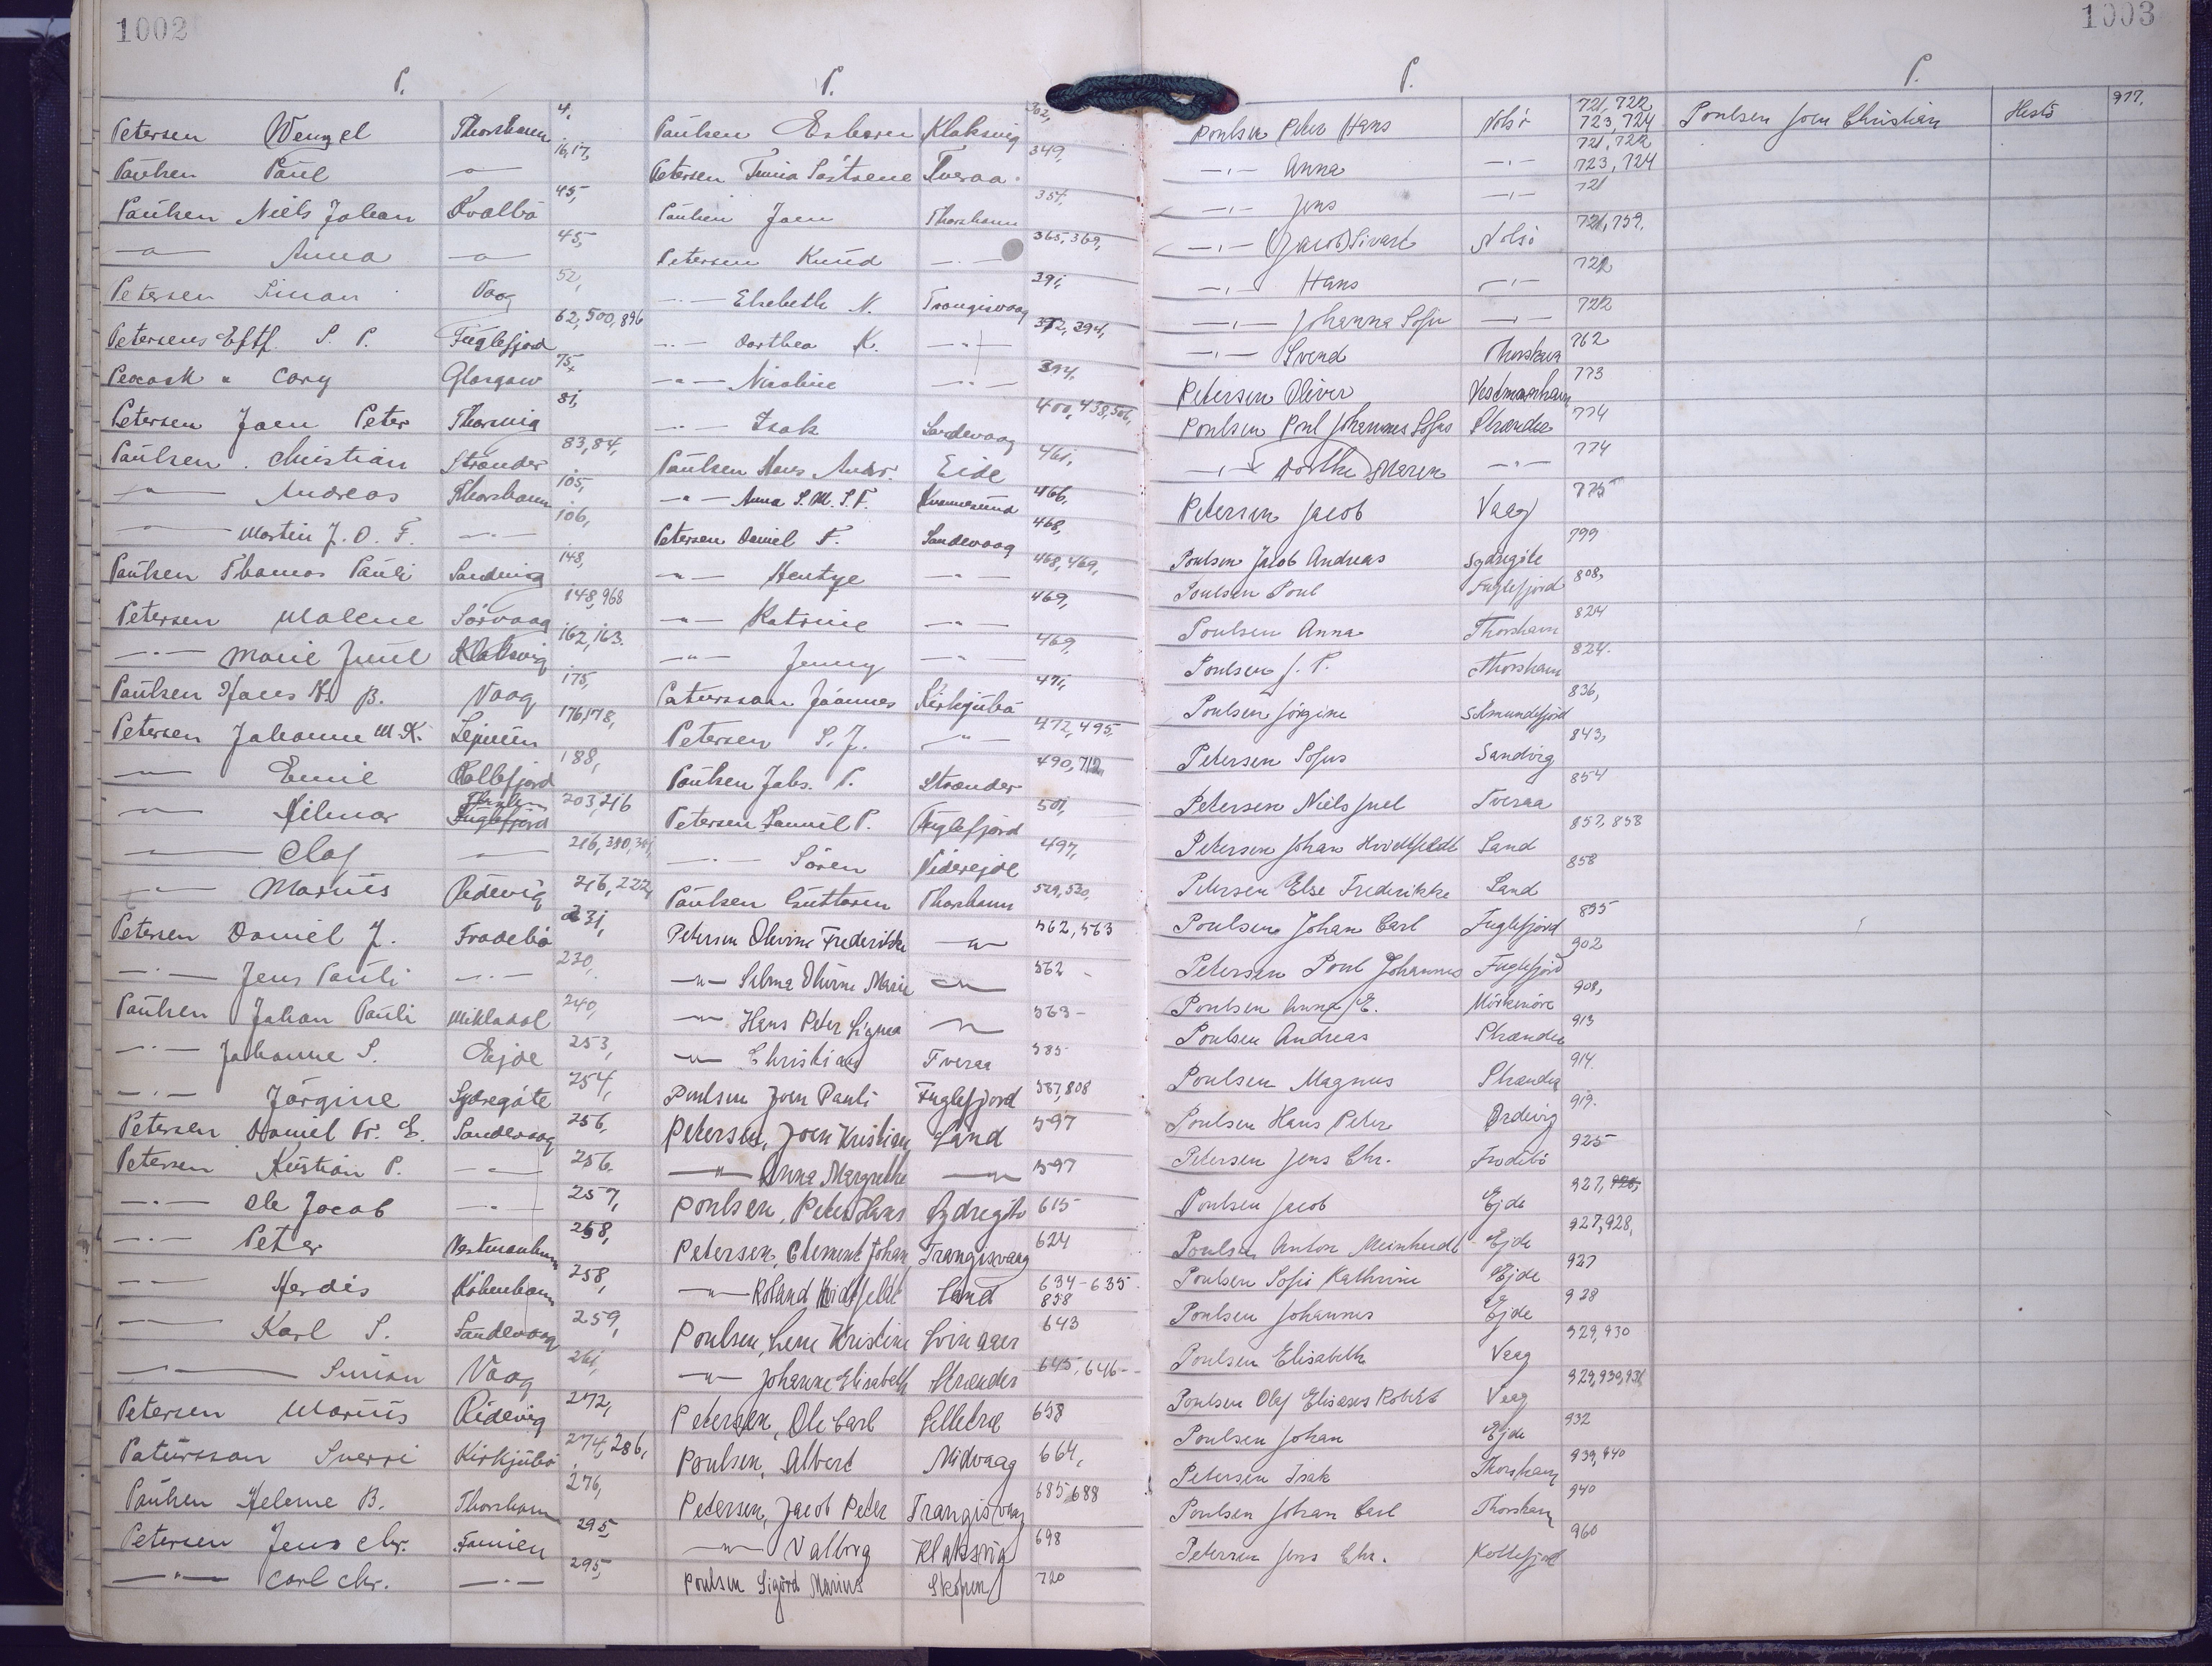 1002
P.
Petersen Wenzel Thorshavn 4,
Paulsen Paul —"— 16,17,
Paulsen Niels Johan Kvalbö 45,
—"— Anna —"— 45,
Petersen Simon Vaag 52,
Petersens Eftf. S. P. Fuglefjord 62,500,896
Peacock & Cory Glasgow 75,
Petersen Joen Peter 81,
Paulsen Christian Strænder 83,84,
—"— Andreas Thorshavn 105,
—"— Martin J. D. F. —"— 106,
Paulsen Thomas Pauli Sandvig 148,
Petersen Malene Sörvaag 148,968
—"— Marie Juul Klaksvig 162,163.
Paulsen Hans N. B. Vaag 175,
Petersen Johanne M.K. 176,178,
—"— Emil Kollefjord 188,
—"— Hilmar Fuglefjord 203,216
—"— Olaf —"— 216,
—"— Marius Ridevig 216,222,
Petersen Daniel J. Frodebö 231,
—"— Jens Pauli —"— 230,
Paulsen Johan Pauli Mikladal 240,
—"— Johanne S. Ejde 253,
—"— Jörgine Sydregöte 254,
Petersen Daniel Fr. E. Sandevaag 256,
Petersen Kristian P. —"— 256,
—"— Ole Jacob —"— 257,
—"— Peter Vestmanhavn 258,
—"— Herdis Köbenhavn 258,
—"— Karl S. Sandevaag 259,
—"— Simon Vaag 261,
Petersen Marius Ridevig 272,
Patursson Sverri Kirkjubö 274,286,
Paulsen Helene B. Thorshavn 276,
Petersen Jens Chr. Famien 295,
—"— Carl Chr. —"— 295,
P.
Paulsen Esbern Klaksvig 302,
Petersen Tveraa 349,
Paulsen Joen Thorshavn 351,
Petersen Knud —"— 365,369,
—"— Elsebeth N. Trangisvaag 391,
—"— Dorthea K. —"— 372,394,
—"— Nicoline —"— 394,
—"— Isak Sandevaag 400,438,506,
Paulsen Hans Andr. Eide 461,
—"— Anna S.M.S.F. Kvannesund 466,
Petersen Daniel F. Sandevaag 468,
—"— Hentze —"— 468,469,
—"— Katrine —"— 469,
—"— Jenny —"— 469,
Patursson Jóannes Kirkjubö 471,
Petersen S. J. —"— 472,495,
Paulsen Johs. P. Strænder 490,712,
Petersen Samuel P. Fuglefjord 501,
—"— Sören Viderejde 497,
Paulsen Guttorm Thorshavn 529,530,
Petersen Olevine Frederikke —"— 562,563
—"— Selma Olivine Marie —"— 562 -
—"— Hans Peter Sigma —"— 563 -
—"— Christian Tveraa 585
Poulsen Joen Pauli Fuglefjord 587,808
Petersen, Joen Kristian Land 597
—"— Anna Margrethe —"— 597
Poulsen, Peter Hans Sydregöte 615
Petersen, Clement Johan Trangisvaag 624
—"— Roland Hvidtfeldt Land 634-635
858
Poulsen, Lene Kristine Svinaaer 643
—"— Johanne Elisabeth Strænder 645,646-
Petersen, Ole Carl Selletræ 658
Poulsen, Albert Midvaag 664,
Petersen, Jacob Peter Trangisvaag 685,688
—"— Valborg Klaksvig 698
Poulsen Sigörd Marius Skopen 720
1003
P.
Poulsen Peter Hans Nolsö 721,722
723,724
—"— Anna —"— 721,722
723,724
—"— Jens —"— 721
—"— Jacob Sivart Nolsö 721,759,
—"— Hans —"— 722
—"— Johanna Sofie —"— 722
—"— Svend Thorshavn 762
Petersen Oliver Vestmanhavn 773
Poulsen Poul Johannes Sofus Strænder 774
—"— Dorthe Maren —"— 774
Petersen Jacob Vaag 775
Poulsen Jacob Andreas Sydregöte 799
Poulsen Poul Fuglefjord 808,
Poulsen Anna Thorshavn 824
Poulsen J. P. Thorshavn 824.
Poulsen Jörgine Selmundefjord 836,
Petersen Sofus Sandvig 843,
Petersen Niels Juel Tveraa 854
Petersen Johan Hvidtfeldt Land 857,858
Petersen Else Frederikke Land 858
Poulsen Johan Carl Fuglefjord 895
Petersen Poul Johannes Fuglefjord 902
Poulsen Anna E. Mörkenöre 908,
Poulsen Andreas Strænder 913
Poulsen Magnus Strænder 914.
Poulsen Hans Peter Ördevig 919.
Petersen Jens Chr. Frodebö 925
Poulsen Jacob Ejde 927, 928,
Poulsen Anton Meinhardt Ejde 927,928,
Poulsen Sofie Kathrine Ejde 927
Poulsen Johannes Ejde 928
Poulsen Elisabeth Vaag 929,930
Poulsen Olaf Eliases Robert Vaag 929,930,931
Poulsen Johan Ejde 932
Petersen Isak Thorshavn 939,940
Poulsen Johan Carl Thorshavn 940
Petersen Jens Chr. Kollefjord 960
P.
Poulsen Joen Christian Hestö 977,